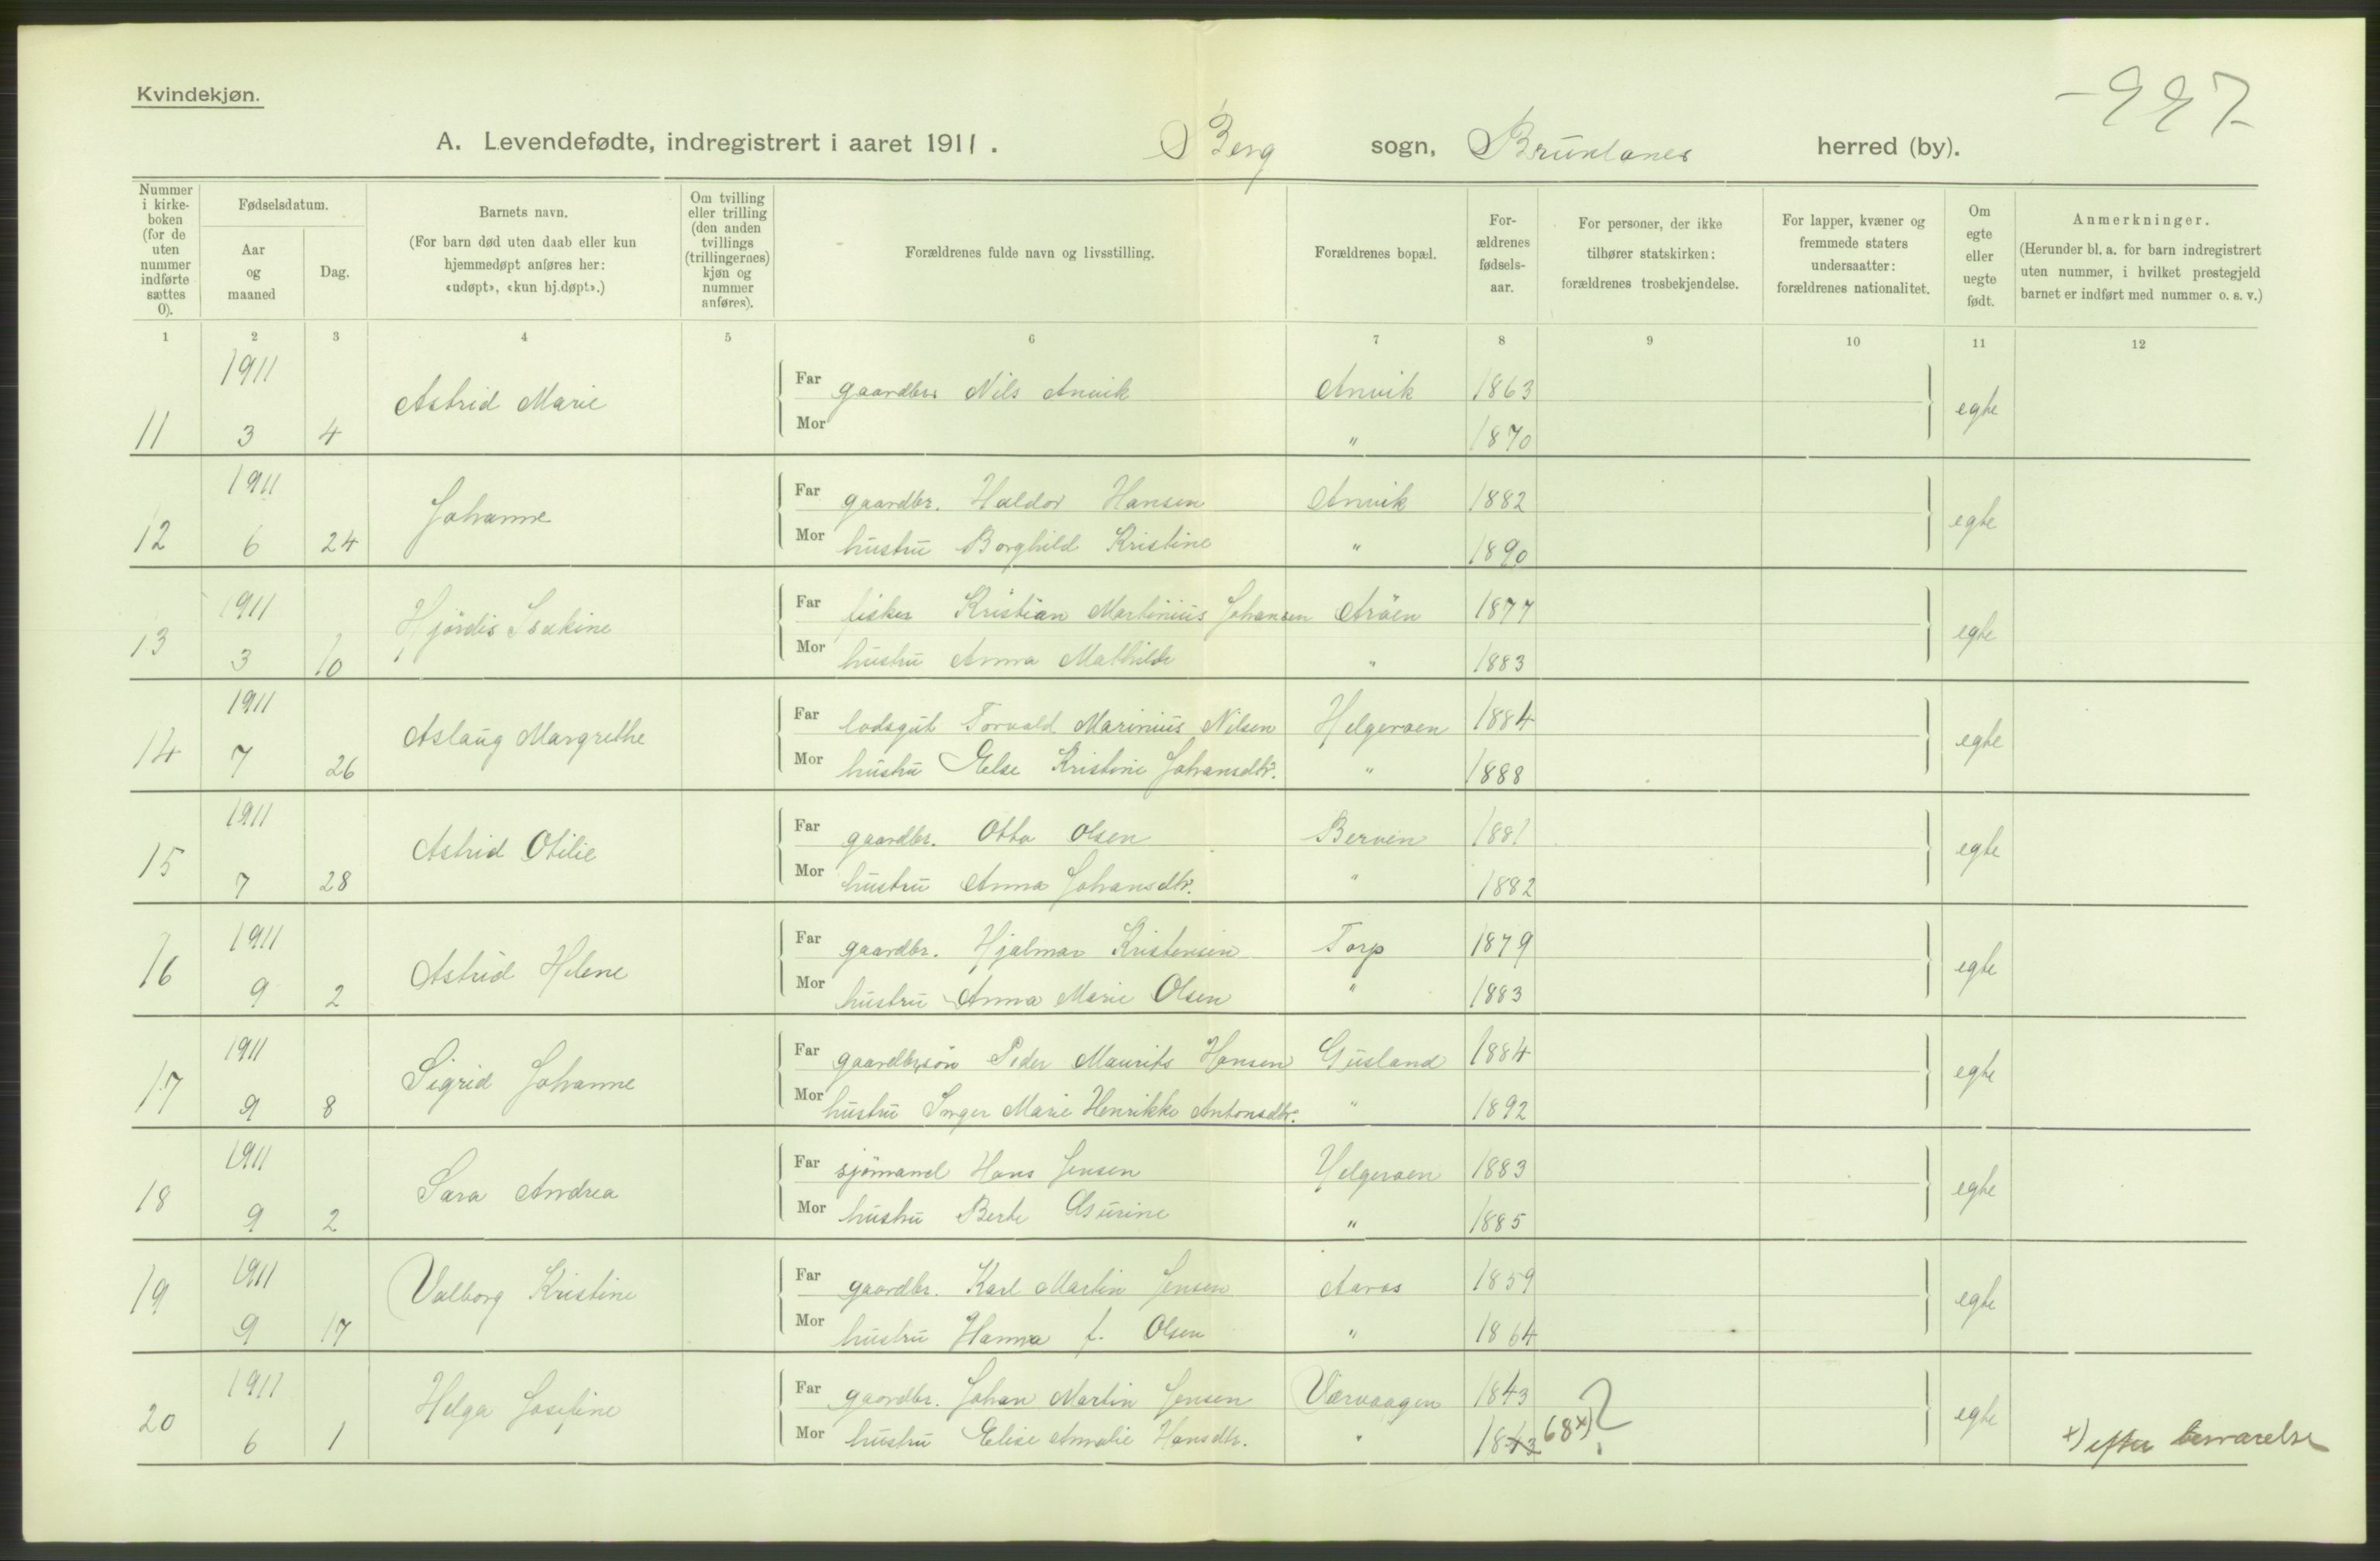 Kvindekjøn.
- 997
A. Levendefødte, indregistrert i aaret 1911. Berg sogn, Brunlanes herred (by).
Nummer i kirke-boken (for de uten nummer indførte sættes 0).
Fødselsdatum.
Aar og maaned
Dag.
Barnets navn.
(For barn død uten daab eller kun hjemmedøpt anføres her: «udøpt», «kun hj.døpt».)
Om tvilling eller trilling (den anden tvillings (trillingernes) kjøn og nummer anføres).
Forældrenes fulde navn og livsstilling.
Forældrenes bopæl.
For-ældrenes fødsels-aar.
For personer, der ikke tilhører statskirken: forældrenes trosbekjendelse.
For lapper, kvæner og fremmede staters undersaatter: forældrenes nationalitet.
Om egte eller uegte født.
Anmerkninger.
(Herunder bl. a. for barn indregistrert uten nummer, i hvilket prestegjeld barnet er indført med nummer o. s. v.)
1 2 3 4 5 6 7 8 9 10 11 12
1911
Astrid Marie Far gaardbr. Nils Anvik Anvik 1863 egte
11 3 4 Mor " 1870
1911
Johanne Far gaardbr. Haldor Hansen Anvik 1882 egte
12 6 24 Mor hustru Borghild Kristine " 1890
1911
Hjördis Isakine Far fisker Kristian Martinius Johansen Aröen 1877 egte
13 3 10 Mor hustru Anna Mathilde " 1883
1911
Aslaug Margrethe Far lodsgut Torvald Marinius Nilsen Helgeroen 1884 egte
14 7 26 Mor hustru Else Kristine Johansdtr. " 1888
1911
Astrid Otilie Far gaardbr. Otto Olsen Berven 1881 egte
15 7 28 Mor hustru Anna Johansdtr. " 1882
1911
Astrid Helene Far gaardbr. Hjalmar Kristensen Torp 1879 egte
16 9 2 Mor hustru Anna Marie Olsen " 1883
1911
Sigrid Johanne Far gaardbrsön Peder Maurits Hansen Gusland 1884 egte
17 9 8 Mor hustru Inger Marie Henrikke Antonsdtr. " 1892
1911
Sara Andrea Far sjömand Hans Jensen Helgeroen 1883 egte
18 9 2 Mor hustru Berte Gurine " 1885
1911
Valborg Kristine Far gaardbr. Karl Martin Jensen Aaros 1859 egte
19 9 17 Mor hustru Hanna f. Olsen " 1864
1911
Helga Josefine Far gaardbr. Johan Martin Jensen Værvaagen 1843 ? egte
20 6 1 Mor hustru Elise Amalie Hansdtr. " 1843 68x) x) efter besvarelse